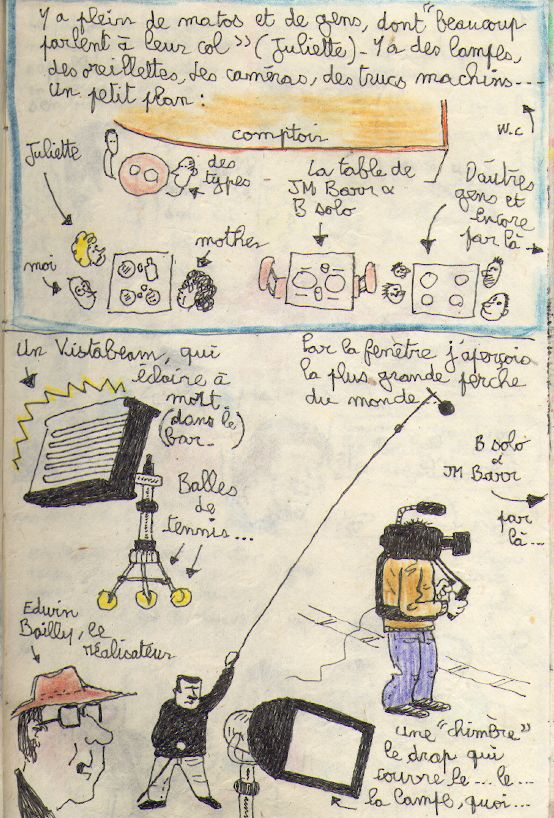 Y a plein de matos et de gens, dont "beaucoup
parlent à leur col" (Juliette) - Y a des lampes,
des oreillettes, des caméras, des trucs machins...
Un petit plan :
comptoir
W.C
Juliette
des
types
La table de
JM Barr &
B Solo
D'autres
gens et
encore
par là
moi
mother
Un Vistabeam, qui
éclaire à
mort
(dans le)
bar..
Par la fenêtre j'aperçois
la plus grande perche
du monde...
Balles
de
tennis...
B Solo
&
JM Barr
par
là...
Edwin
Bailly, le
réalisateur
une "chimère"
le drap qui
couvre le... le...
la lampe, quoi...